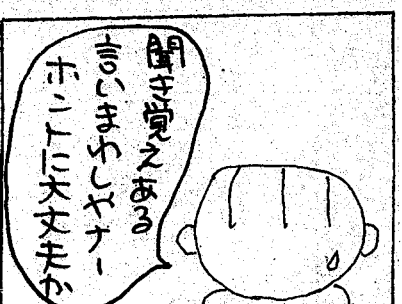 聞き覚えある
言いまわしやナー
ホントに大丈夫か